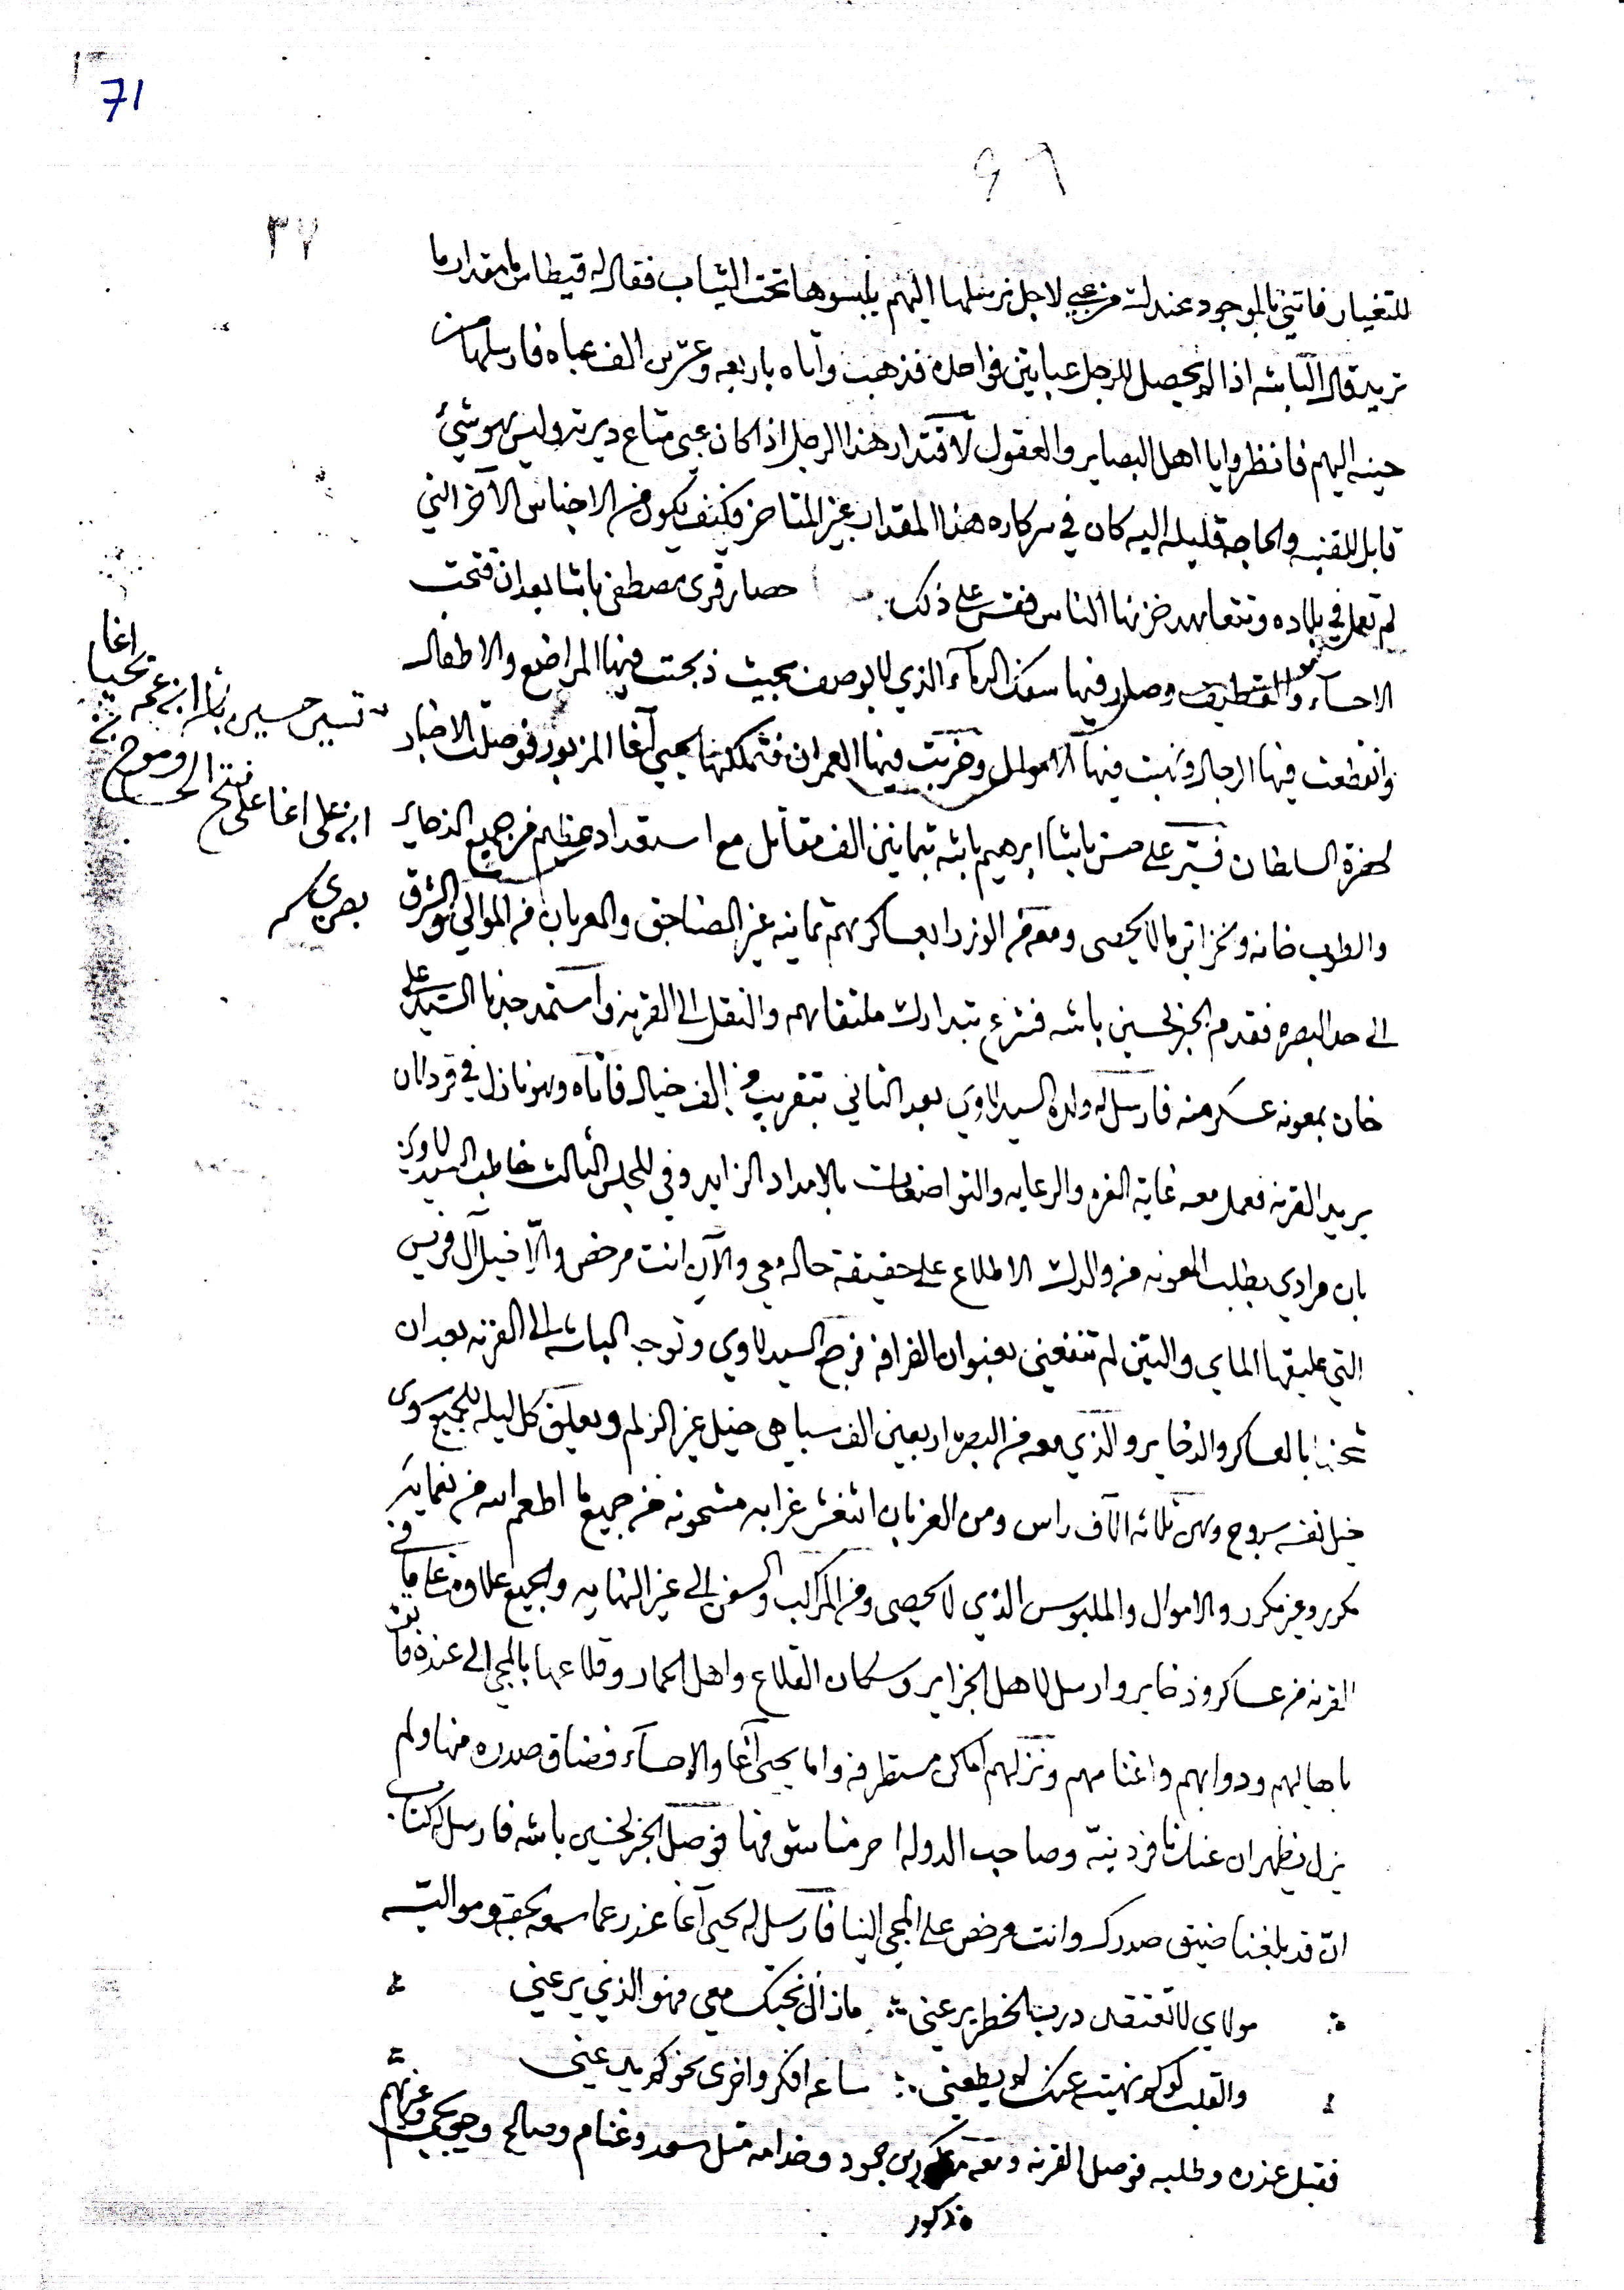 71
٦٩
٣٧
للتغيار فاتني بالموجود عندك من عبي لاجل نرسلها اليهم يلبسوها تحت الثياب فقال له قيطاس ما مقدار ما
تريد قال الباشه اذا لم يحصل للرجل عبايتين فواحده فذهب واتاه باربعه وعشرين الف عباه فارسلها من
حينه اليهم فانظروا يا اهل البصاير والعقول لاقتدار هذا الرجل اذا كان عبي متاع ديرته وليس هو شئ
قابل للقنيه والحاجه قليله اليه كان في سركاره هذا المقدار غير المتاخر فكيف يكون من الاجناس الآخر التي
لم تعمل في بلاده وتتعاهد خزنها الناس فقس على ذلك حصار قرى مصطفى باشا بعد ان فتحت
الاحسآء والقطيف وصار فيها سفك الدمآء الذي لا يوصف بحيث ذبحت فيها المراضع والاطفال
وانقطعت فيها الرجال ونهبت فيها الاموال وخربت فيها العمران فتملكها يحيى آغا المزبور فوصلت الاخبار
لحضرة السلطان فسير على حسين باشا ابرهيم باشه بثمانين الف مقاتل مع استعداد عظيم من جميع الذخاير
والطوب خانه وبخزاين ما لا يحصى ومعه من الوزرا بعساكرهم ثمانيه غير الصناجق والعربان من الموالي والشرق
الى حد البصره فقدم الخبر لحسين باشه فشرع بتدارك ملتقاهم والنقل الى القرنه واستمد جدنا السيد على
خان بمعونه عسكر منه فارسل له ولده السيد لاوي بعد الثاني بتقريب الف خيال فاتاه وهو نازل في قردلان
يريد القرنه فعمل معه غاية العزه والرعايه والتواضعات بالامداد الزايد وفي المجلس الثالث خاطب السيد لاوي
بان مرادي بطلب المعونه من والدك الاطلاع على حقيقة حاله معي والآن انت مرخص والا خيل آل قريس
التي عليقها الماي والتبن لم تنفعني بعنوان الظرافه فرجع السيد لاوي وتوجه الباشه الى القرنه بعد ان
شحنها بالعساكر والذخاير والذي معه من البصره اربعين الف سباهي خيل غير الزلم وتعليق كل ليله للجميع سوى
خيل نفسه سروج وهي ثلاثه الآف راس ومن الغربان اثنعشر غرابه مشحونه من جميع ما اطعم الله من نعمايه
مكرر وغير مكرر والاموال والملبوس الذي لا يحصى ومن المراكب والسفن الى غير النهايه والجميع علاوة على ما في
القرنه من عساكر وذخاير وارسل لاهل الجزاير وسكان القلاع واهل الحمار وقلاعها بالمجي الى عنده فاتت
باهاليهم ودوابهم واغنامهم ونزلهم اماكن مستطرفه واما يحيى آغا والاحسآء فضاق صدره منها ولم
يزل يظهر ان عندنا فردينه وصاحب الدوله احرمنا شوفها فوصل الخبر لحسين باشه فارسل له كتاب
ان قد بلغنا ضيق صدرك وانت مرخص على المجي الينا فارسل له يحيى آغا عذر عما سعه بحقه ومواليته
مولاي لا تعتقد درب الخطر يرعني ماذال نجتك معي فهو الذي يرعني
والقلب كوكم نهيته عنك لم يطعني ساعه افكر واخرى نحوكم يدعني
فقبل عذره وطلبه فوصل القرنه ومعه بن حمود وخدامه مثل سعد وغنام وصالح وغيرهم
مذكور
تسير حسين باشا ابن عمه يحيا اغا
ابن علي اغا على فتح الحسا
بصري